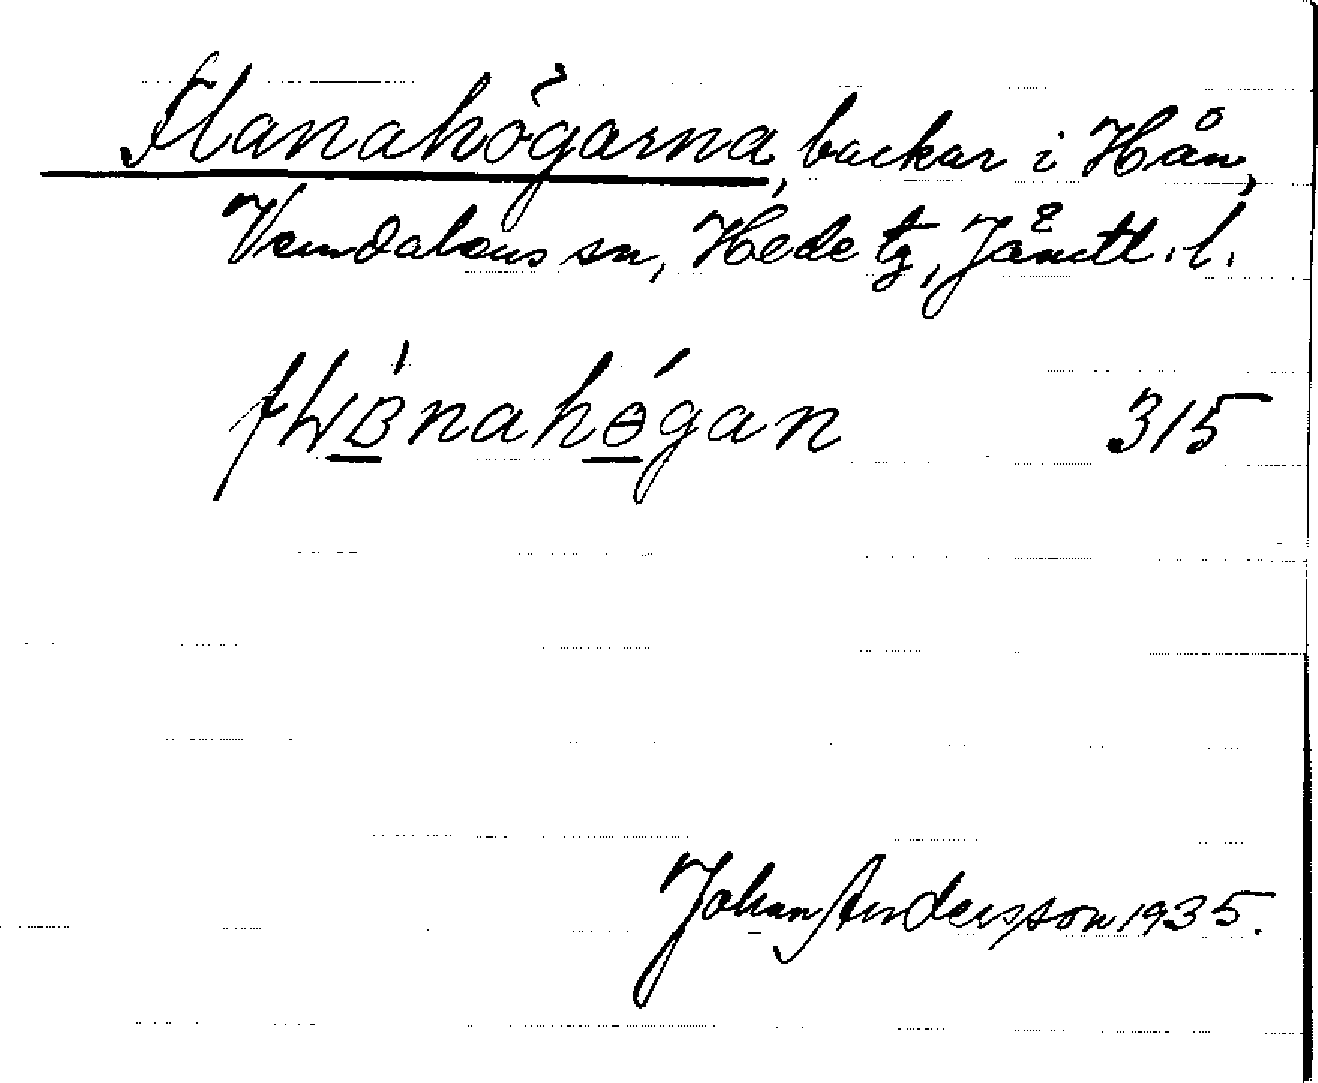 Flanahögarna, backar i Hån,
Vemdalens sn, Hede tg, Jämtl. l.
315
Johan Andersson 1935.